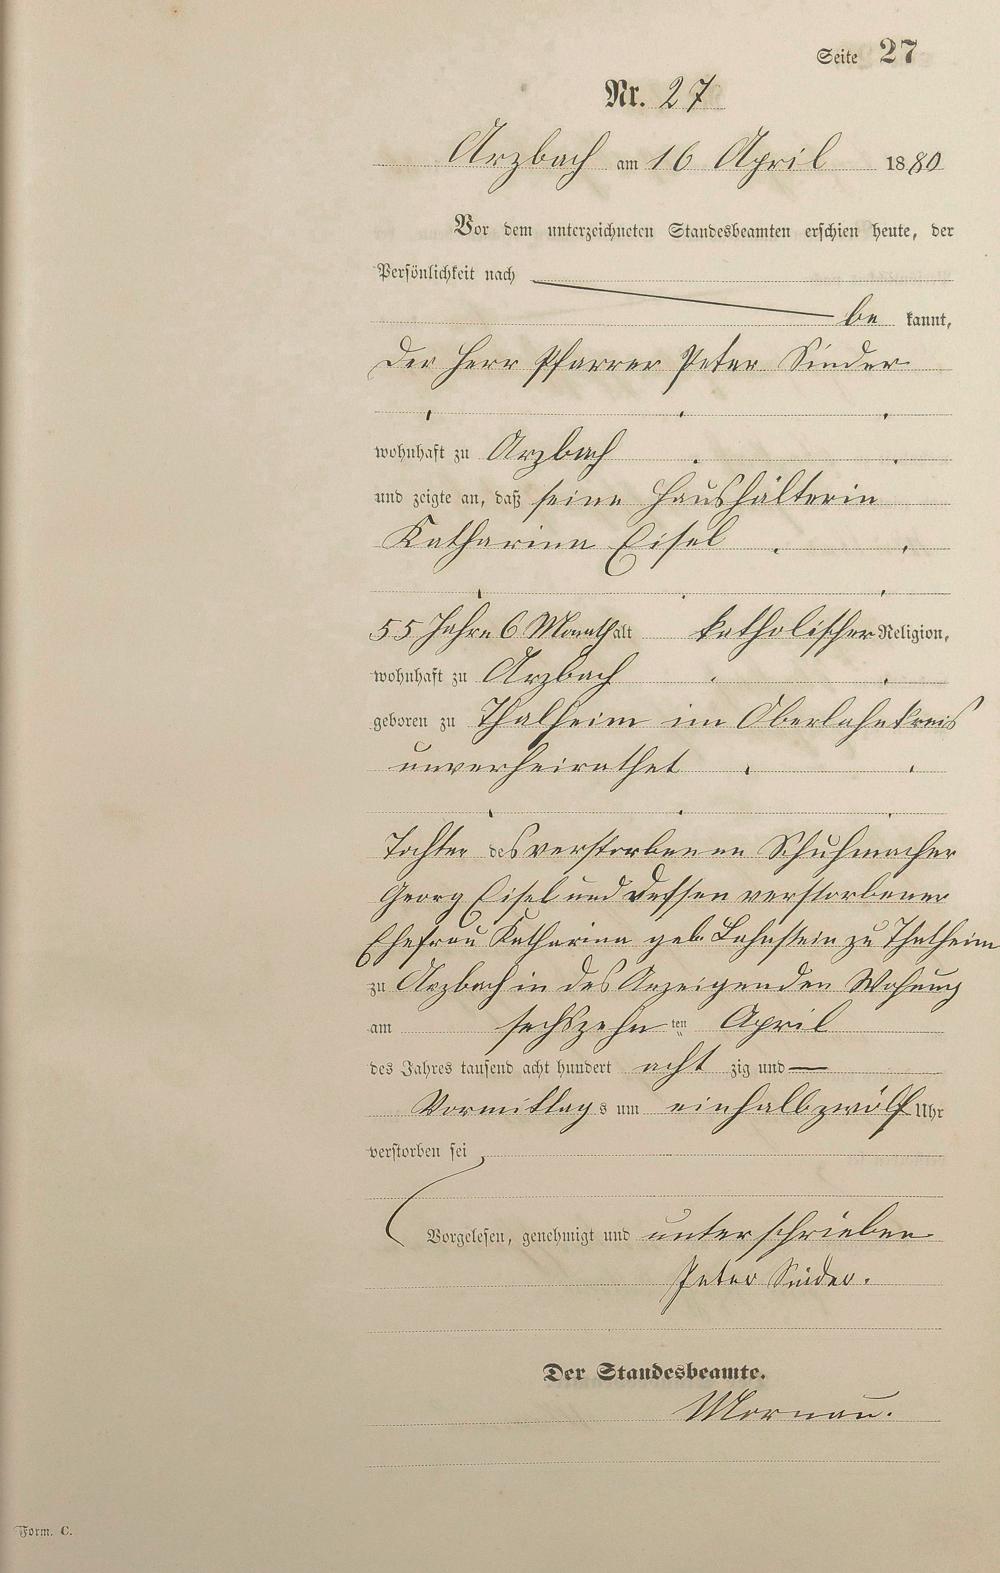 Seite 27
Nr. 27
Arzbach am 16 April 1880
Vor dem unterzeichneten Standesbeamten erschien heute, der
Persönlichkeit nach
be kannt,
der Herr Pfarrer Peter
wohnhaft zu Arzbach
und zeigte an, daß seine Haushälterin
Katharina Eisel
55 Jahre 6 Monath alt katholischer Religion,
wohnhaft zu Arzbach
geboren zu Thalheim im Oberlahnkreis
unverheirathet
Tochter des verstorbenen Schuhmacher
Georg Eisel und dessen verstorbener
Ehefrau Katharina geb. Lahnstein zu Thalheim
zu Arzbach in des Anzeigenden Wohnung
am sechszehn ten April
des Jahres tausend acht hundert acht zig und
Vormittags um einhalbzwölf Uhr
verstorben sei
Vorgelesen, genehmigt und unterschrieben
Peter
Der Standesbeamte.
Mornau.
Form. C.